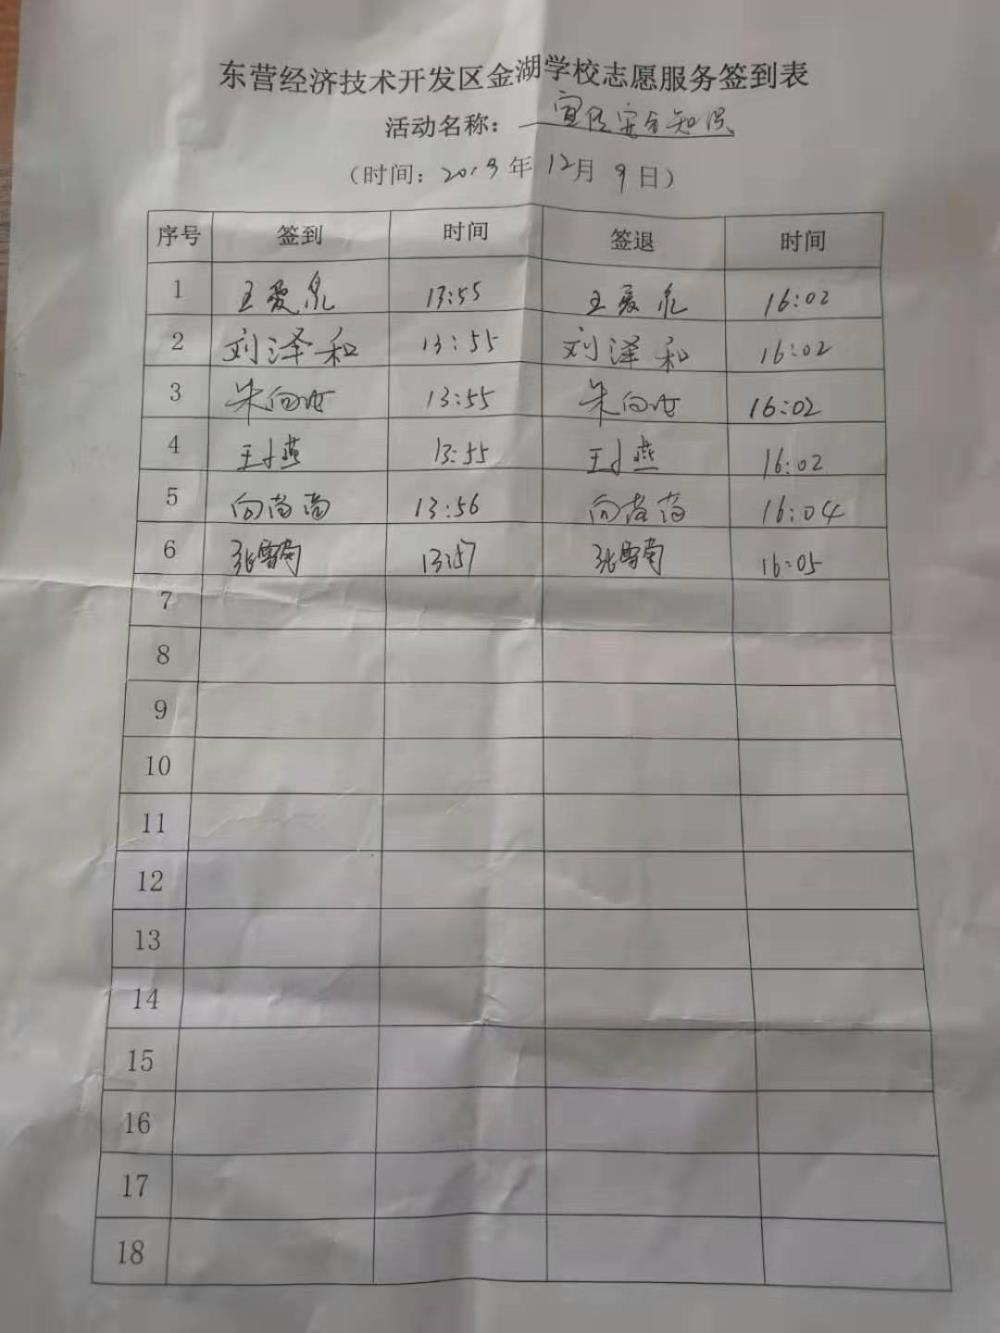 东营经济技术开发区金湖学校志愿服务签到表
活动名称：宣传安全知识
（时间：2019年12月9日）
序号 签到 时间 签退 时间
1 王爱泉 13:55 王爱泉 16:02
2 刘泽和 13:55 刘泽和 16:02
3 朱向 13:55 朱向 16:02
4 王小燕 13:55 王小燕 16:02
5 向苗苗 13:56 向苗苗 16:04
6 张雪南 13:57 张雪南 16:05
7
8
9
10
11
12
13
14
15
16
17
18